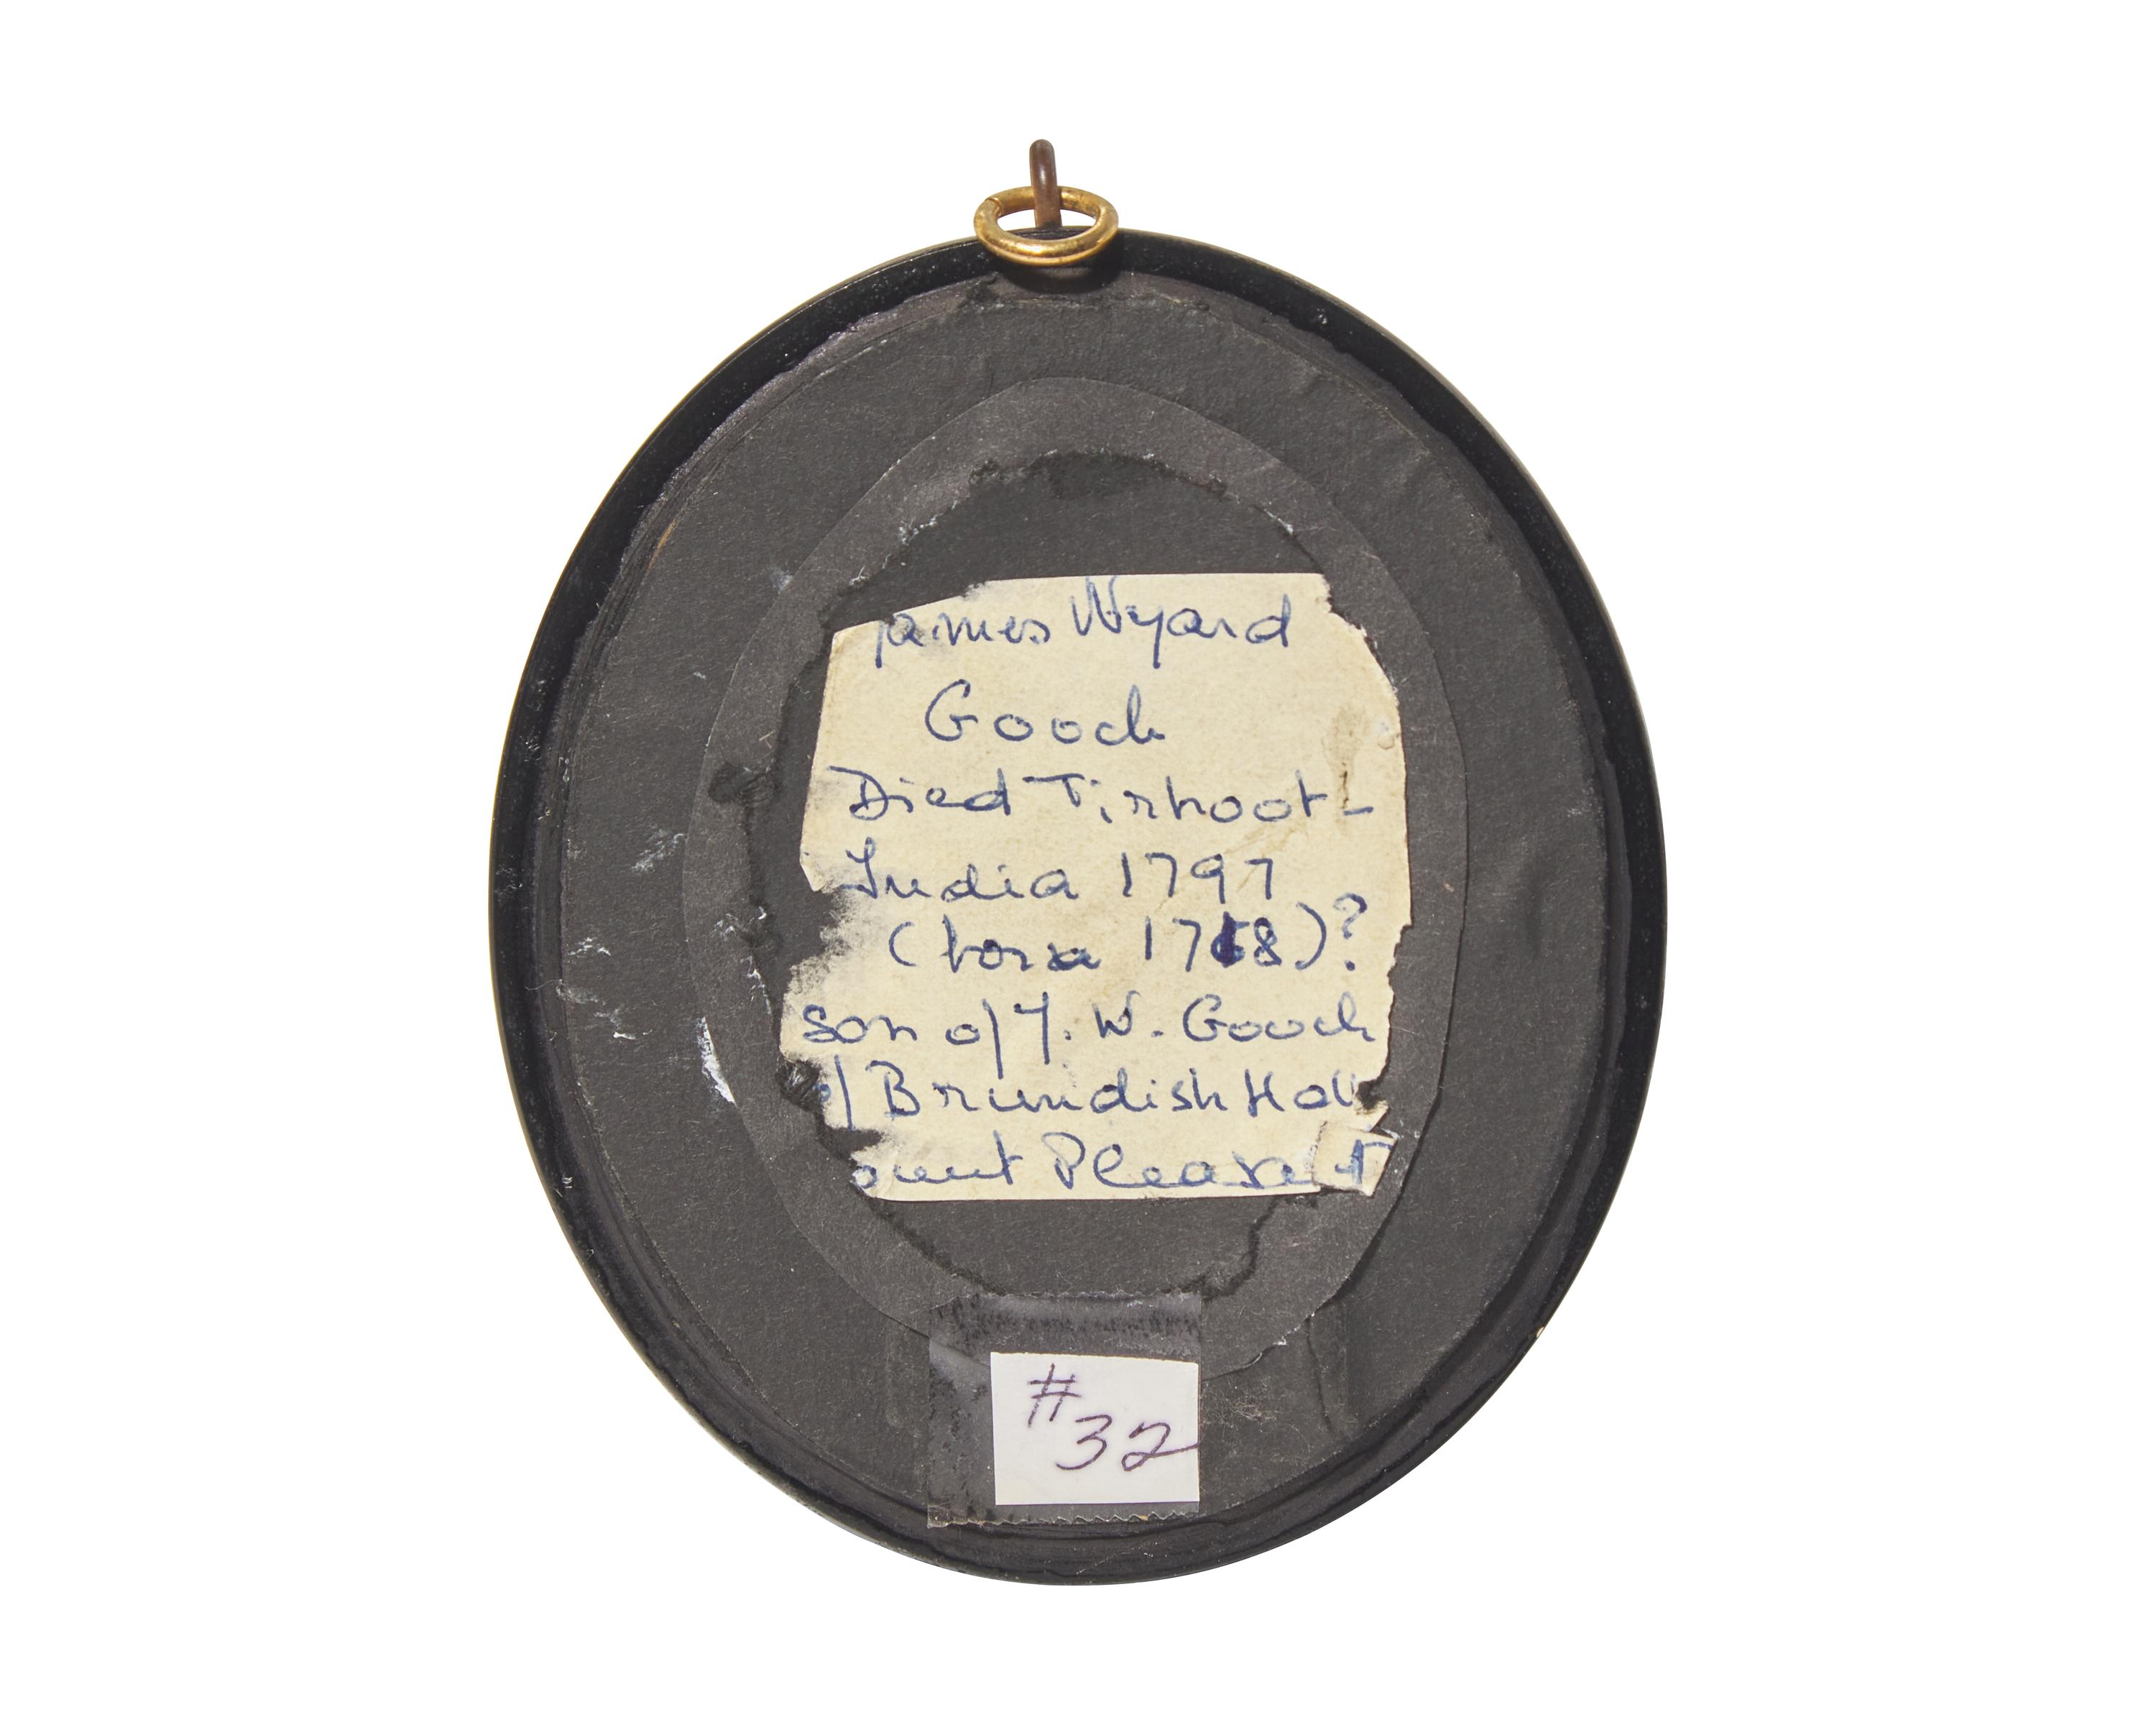 James Wyard
Gooch
Died Tirhoot -
India 1797
(born 1768)?
son of J. W. Gooch
of Brundish Hall
ount Pleasant
#
32